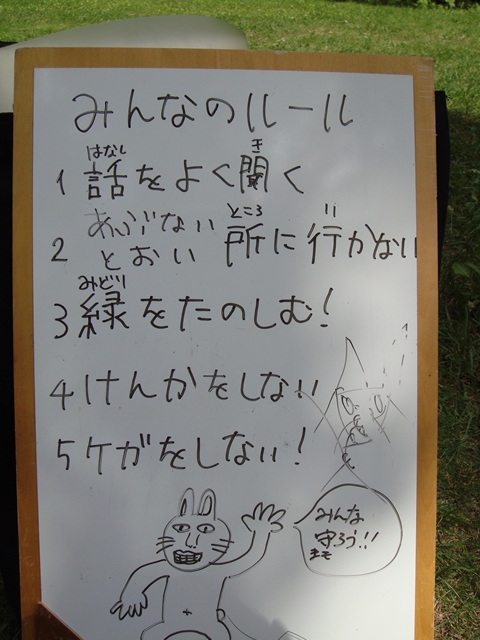 みんなのルール
はなし き
1 話をよく聞く
あぶない ところ い
2 とおい 所に行かない
みどり
3 緑をたのしむ!
4 けんかをしない
5 ケガをしない!
みんな
守ろう!!
まも